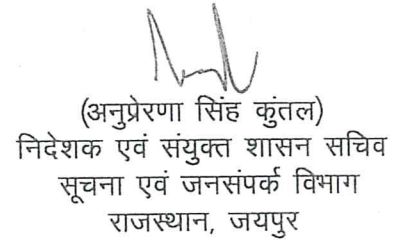 (अनुप्रेरणा सिंह कुंतल)
निदेशक एवं संयुक्त शासन सचिव
सूचना एवं जनसंपर्क विभाग
राजस्थान, जयपुर